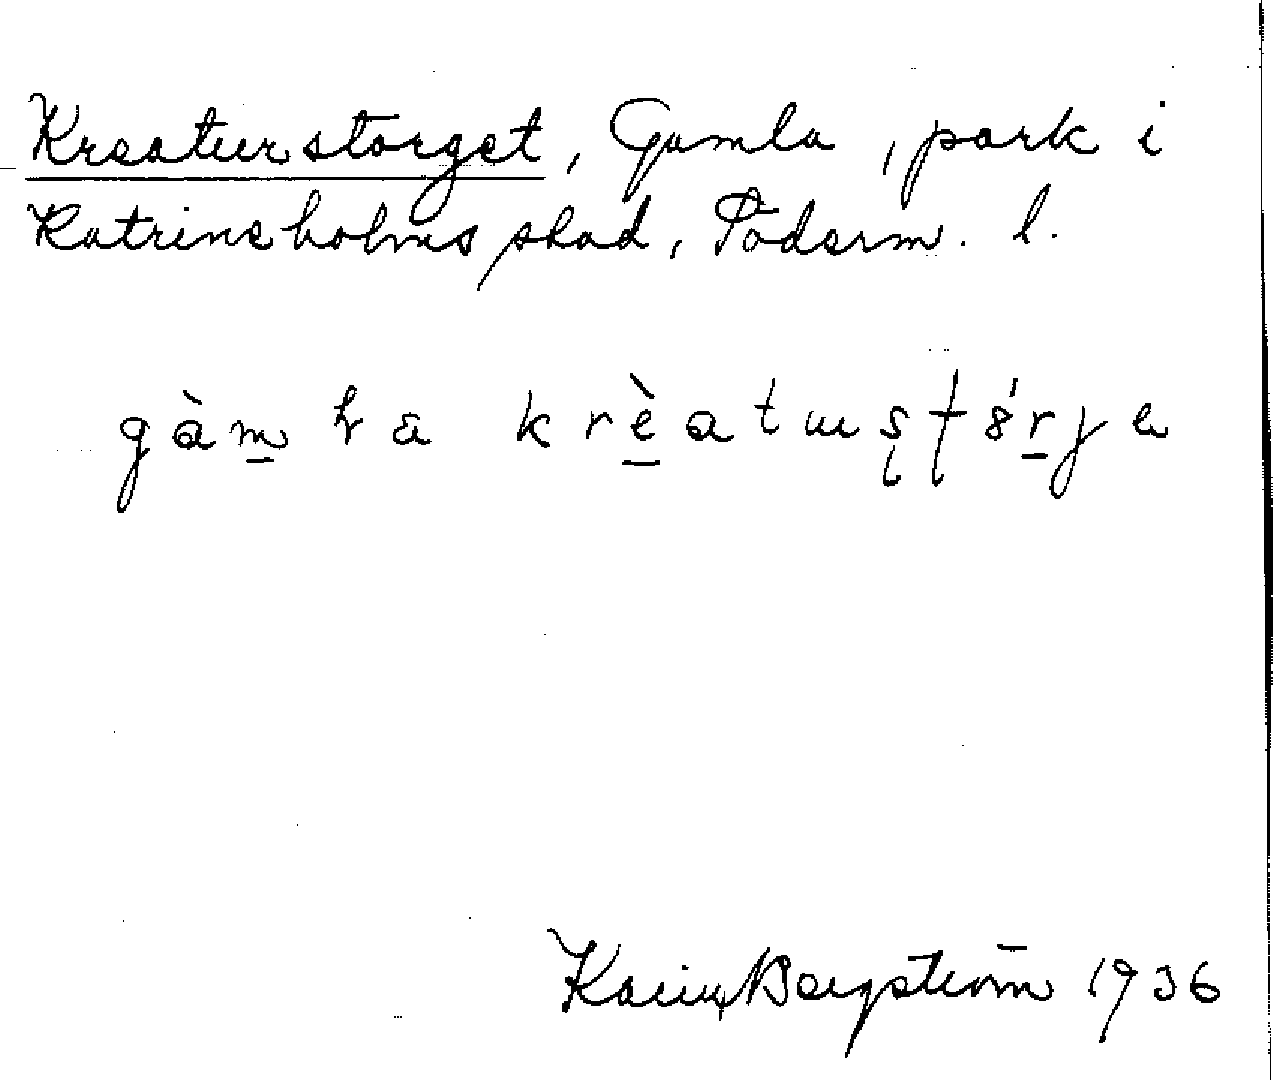 Kreaturstorget, Gamla, park i
Katrineholms stad, Söderm. l.
gàm̲ła krè̲atɯʂʈ8́r̲je
Karin Bergström 1936